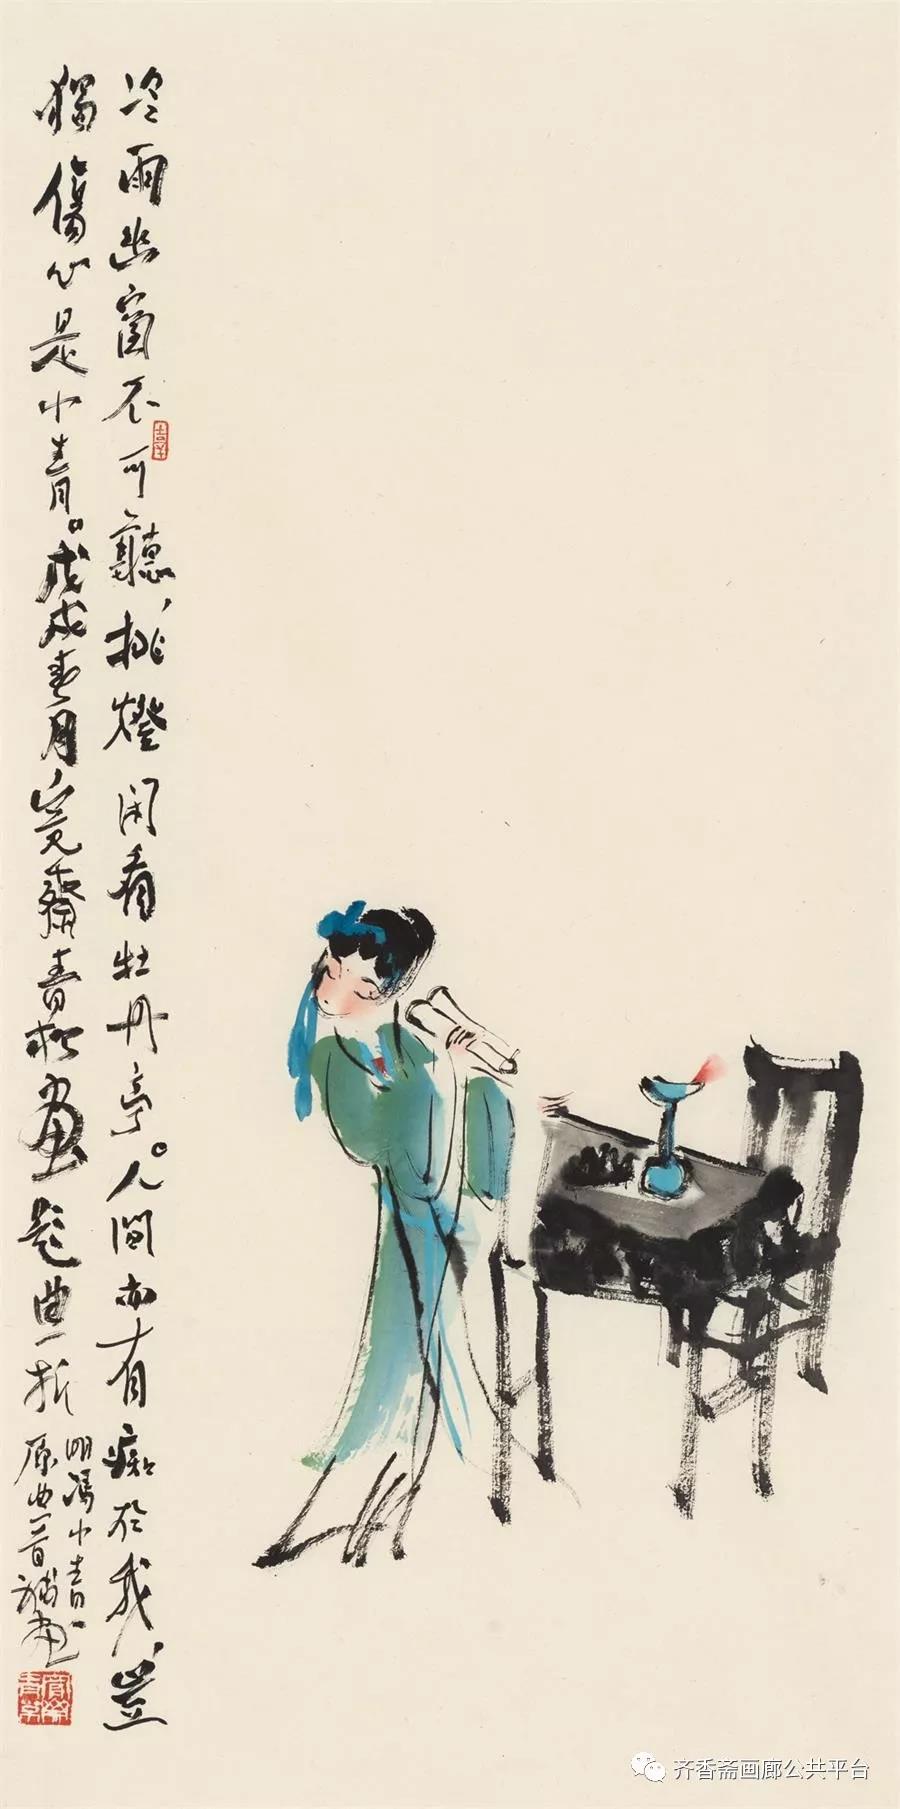 冷雨幽窗不可聽，挑燈閑看牡丹亭。人間亦有痴於我，豈
獨傷心是小青。戊戌春月完齋青松畫題曲一折
明馮小青
原曲一首補畫
齐香斋画廊公共平台